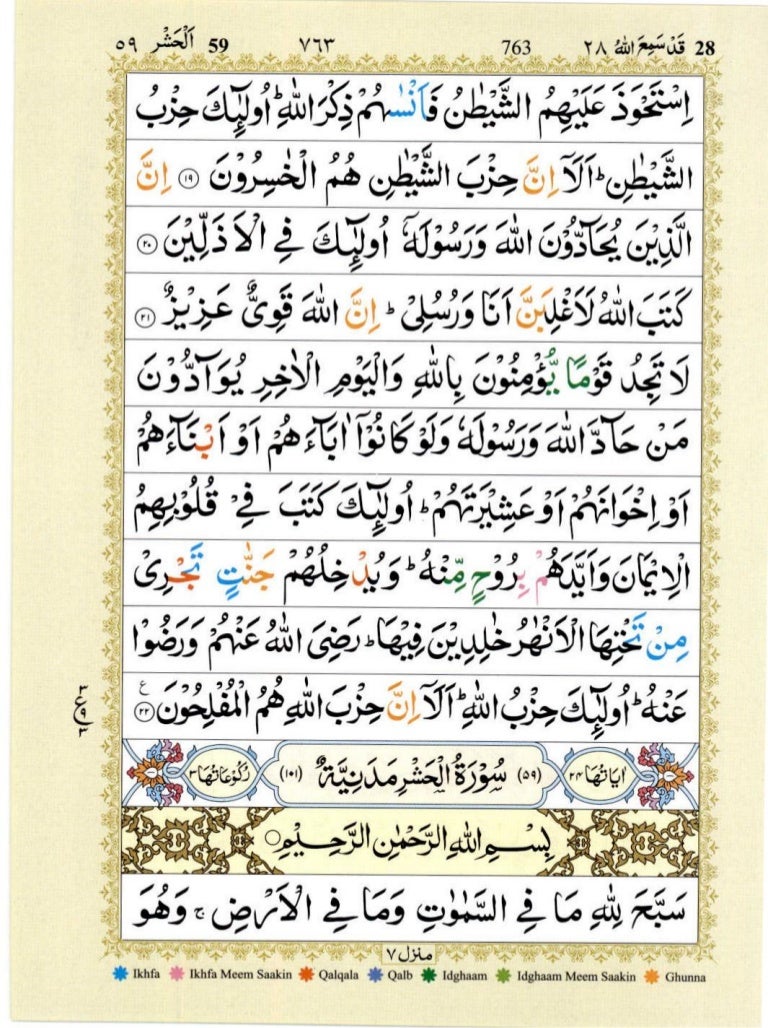 28 قَدْ سَمِعَ اللّٰهُ ٢٨ 763 ٧٦٣ 59 اَلْحَشْر ٥٩
اِسْتَحْوَذَ عَلَيْهِمُ الشَّيْطٰنُ فَاَنْسٰىهُمْ ذِكْرَ اللّٰهِ ؕ اُولٰٓئِكَ حِزْبُ
الشَّيْطٰنِ ؕ اَلَاۤ اِنَّ حِزْبَ الشَّيْطٰنِ هُمُ الْخٰسِرُوْنَ ﴿١٩﴾ اِنَّ
الَّذِيْنَ يُحَآدُّوْنَ اللّٰهَ وَرَسُوْلَهٗۤ اُولٰٓئِكَ فِى الْاَذَلِّيْنَ ﴿٢٠﴾
كَتَبَ اللّٰهُ لَاَغْلِبَنَّ اَنَا وَرُسُلِىْ ؕ اِنَّ اللّٰهَ قَوِىٌّ عَزِيْزٌ ﴿٢١﴾
لَا تَجِدُ قَوْمًا يُّؤْمِنُوْنَ بِاللّٰهِ وَالْيَوْمِ الْاٰخِرِ يُوَآدُّوْنَ
مَنْ حَآدَّ اللّٰهَ وَرَسُوْلَهٗ وَلَوْ كَانُوْۤا اٰبَآءَهُمْ اَوْ اَبْنَآءَهُمْ
اَوْ اِخْوَانَهُمْ اَوْ عَشِيْرَتَهُمْ ؕ اُولٰٓئِكَ كَتَبَ فِىْ قُلُوْبِهِمُ
الْاِيْمَانَ وَاَيَّدَهُمْ بِرُوْحٍ مِّنْهُ ؕ وَيُدْخِلُهُمْ جَنّٰتٍ تَجْرِىْ
مِنْ تَحْتِهَا الْاَنْهٰرُ خٰلِدِيْنَ فِيْهَا ؕ رَضِىَ اللّٰهُ عَنْهُمْ وَرَضُوْا
عَنْهُ ؕ اُولٰٓئِكَ حِزْبُ اللّٰهِ ؕ اَلَاۤ اِنَّ حِزْبَ اللّٰهِ هُمُ الْمُفْلِحُوْنَ ﴿٢٢﴾ ع
اٰيَاتُهَا ٢٤ (٥٩) سُوْرَةُ الْحَشْرِ مَدَنِيَّةٌ (١٠١) رُكُوْعَاتُهَا ٣
بِسْمِ اللّٰهِ الرَّحْمٰنِ الرَّحِيْمِ
سَبَّحَ لِلّٰهِ مَا فِى السَّمٰوٰتِ وَمَا فِى الْاَرْضِ ۚ وَهُوَ
منزل ٧
Ikhfa Ikhfa Meem Saakin Qalqala Qalb Idghaam Idghaam Meem Saakin Ghunna